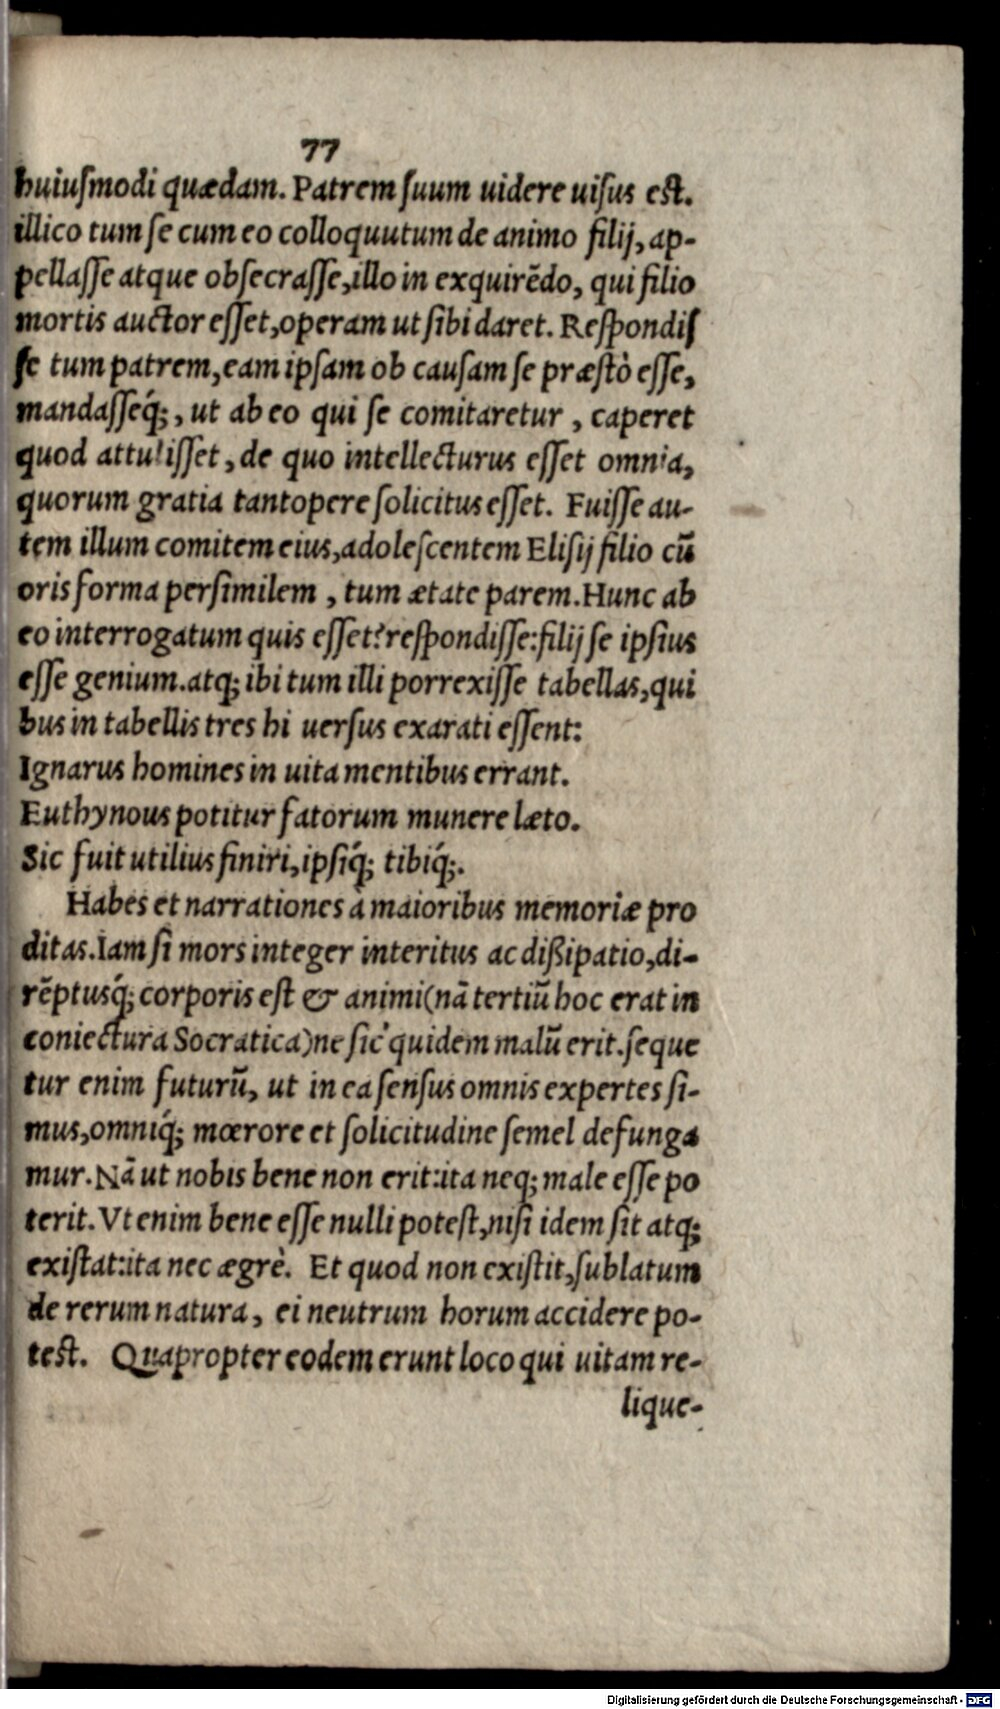 77
huiuſmodi quædam. Patrem ſuum uidere uiſus eſt.
illico tum ſe cum eo colloquutum de animo filij, ap-
pellaſſe atque obſecraſſe, illo in exquirẽdo, qui filio
mortis auctor eſſet, operam ut ſibi daret. Reſpondiſ
ſe tum patrem, eam ipſam ob cauſam ſe præſtò eſſe,
mandaſſeq́;, ut ab eo qui ſe comitaretur, caperet
quod attuliſſet, de quo intellecturus eſſet omnia,
quorum gratia tantopere ſolicitus eſſet. Fuiſſe au-
tem illum comitem eius, adoleſcentem Eliſij filio cũ
oris forma perſimilem, tum ætate parem. Hunc ab
eo interrogatum quis eſſet? reſpondiſſe: filij ſe ipſius
eſſe genium. atq; ibi tum illi porrexiſſe tabellas, qui
bus in tabellis tres hi uerſus exarati eſſent:
Ignarus homines in uita mentibus errant.
Euthynous potitur fatorum munere læto.
Sic fuit utilius finiri, ipſiq́; tibiq́;.
Habes et narrationes à maioribus memoriæ pro
ditas. Iam ſi mors integer interitus ac diſsipatio, di-
rẽptusq́; corporis eſt & animi (nã tertiũ hoc erat in
coniectura Socratica) ne ſic quidem malũ erit. ſeque
tur enim futurũ, ut in ea ſenſus omnis expertes ſi-
mus, omniq́; mœrore et ſolicitudine ſemel defunga
mur. Nã ut nobis bene non erit: ita neq; male eſſe po
terit. Vt enim bene eſſe nulli poteſt, niſi idem ſit atq;
exiſtat: ita nec ægrè. Et quod non exiſtit, ſublatum
de rerum natura, ei neutrum horum accidere po-
teſt. Quapropter eodem erunt loco qui uitam re-
lique-
Digitalisierung gefördert durch die Deutsche Forschungsgemeinschaft - DFG